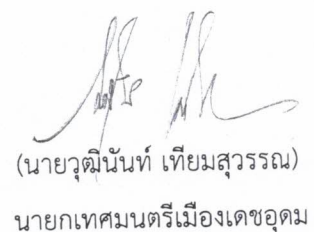 (นายวุฒินันท์ เทียมสุวรรณ)
นายกเทศมนตรีเมืองเดชอุดม